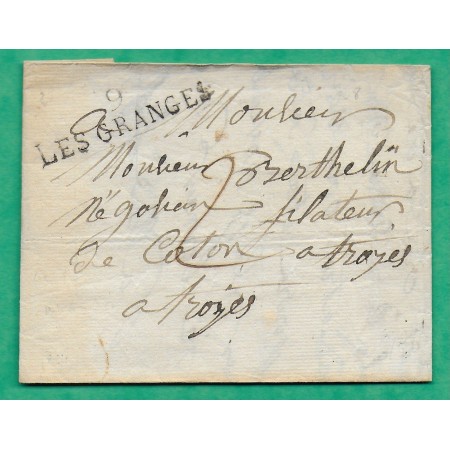 9
LES GRANGES
A Monsieur
Monsieur Berthelin
négotien filateur
de Coton a troyes
a troyes
2